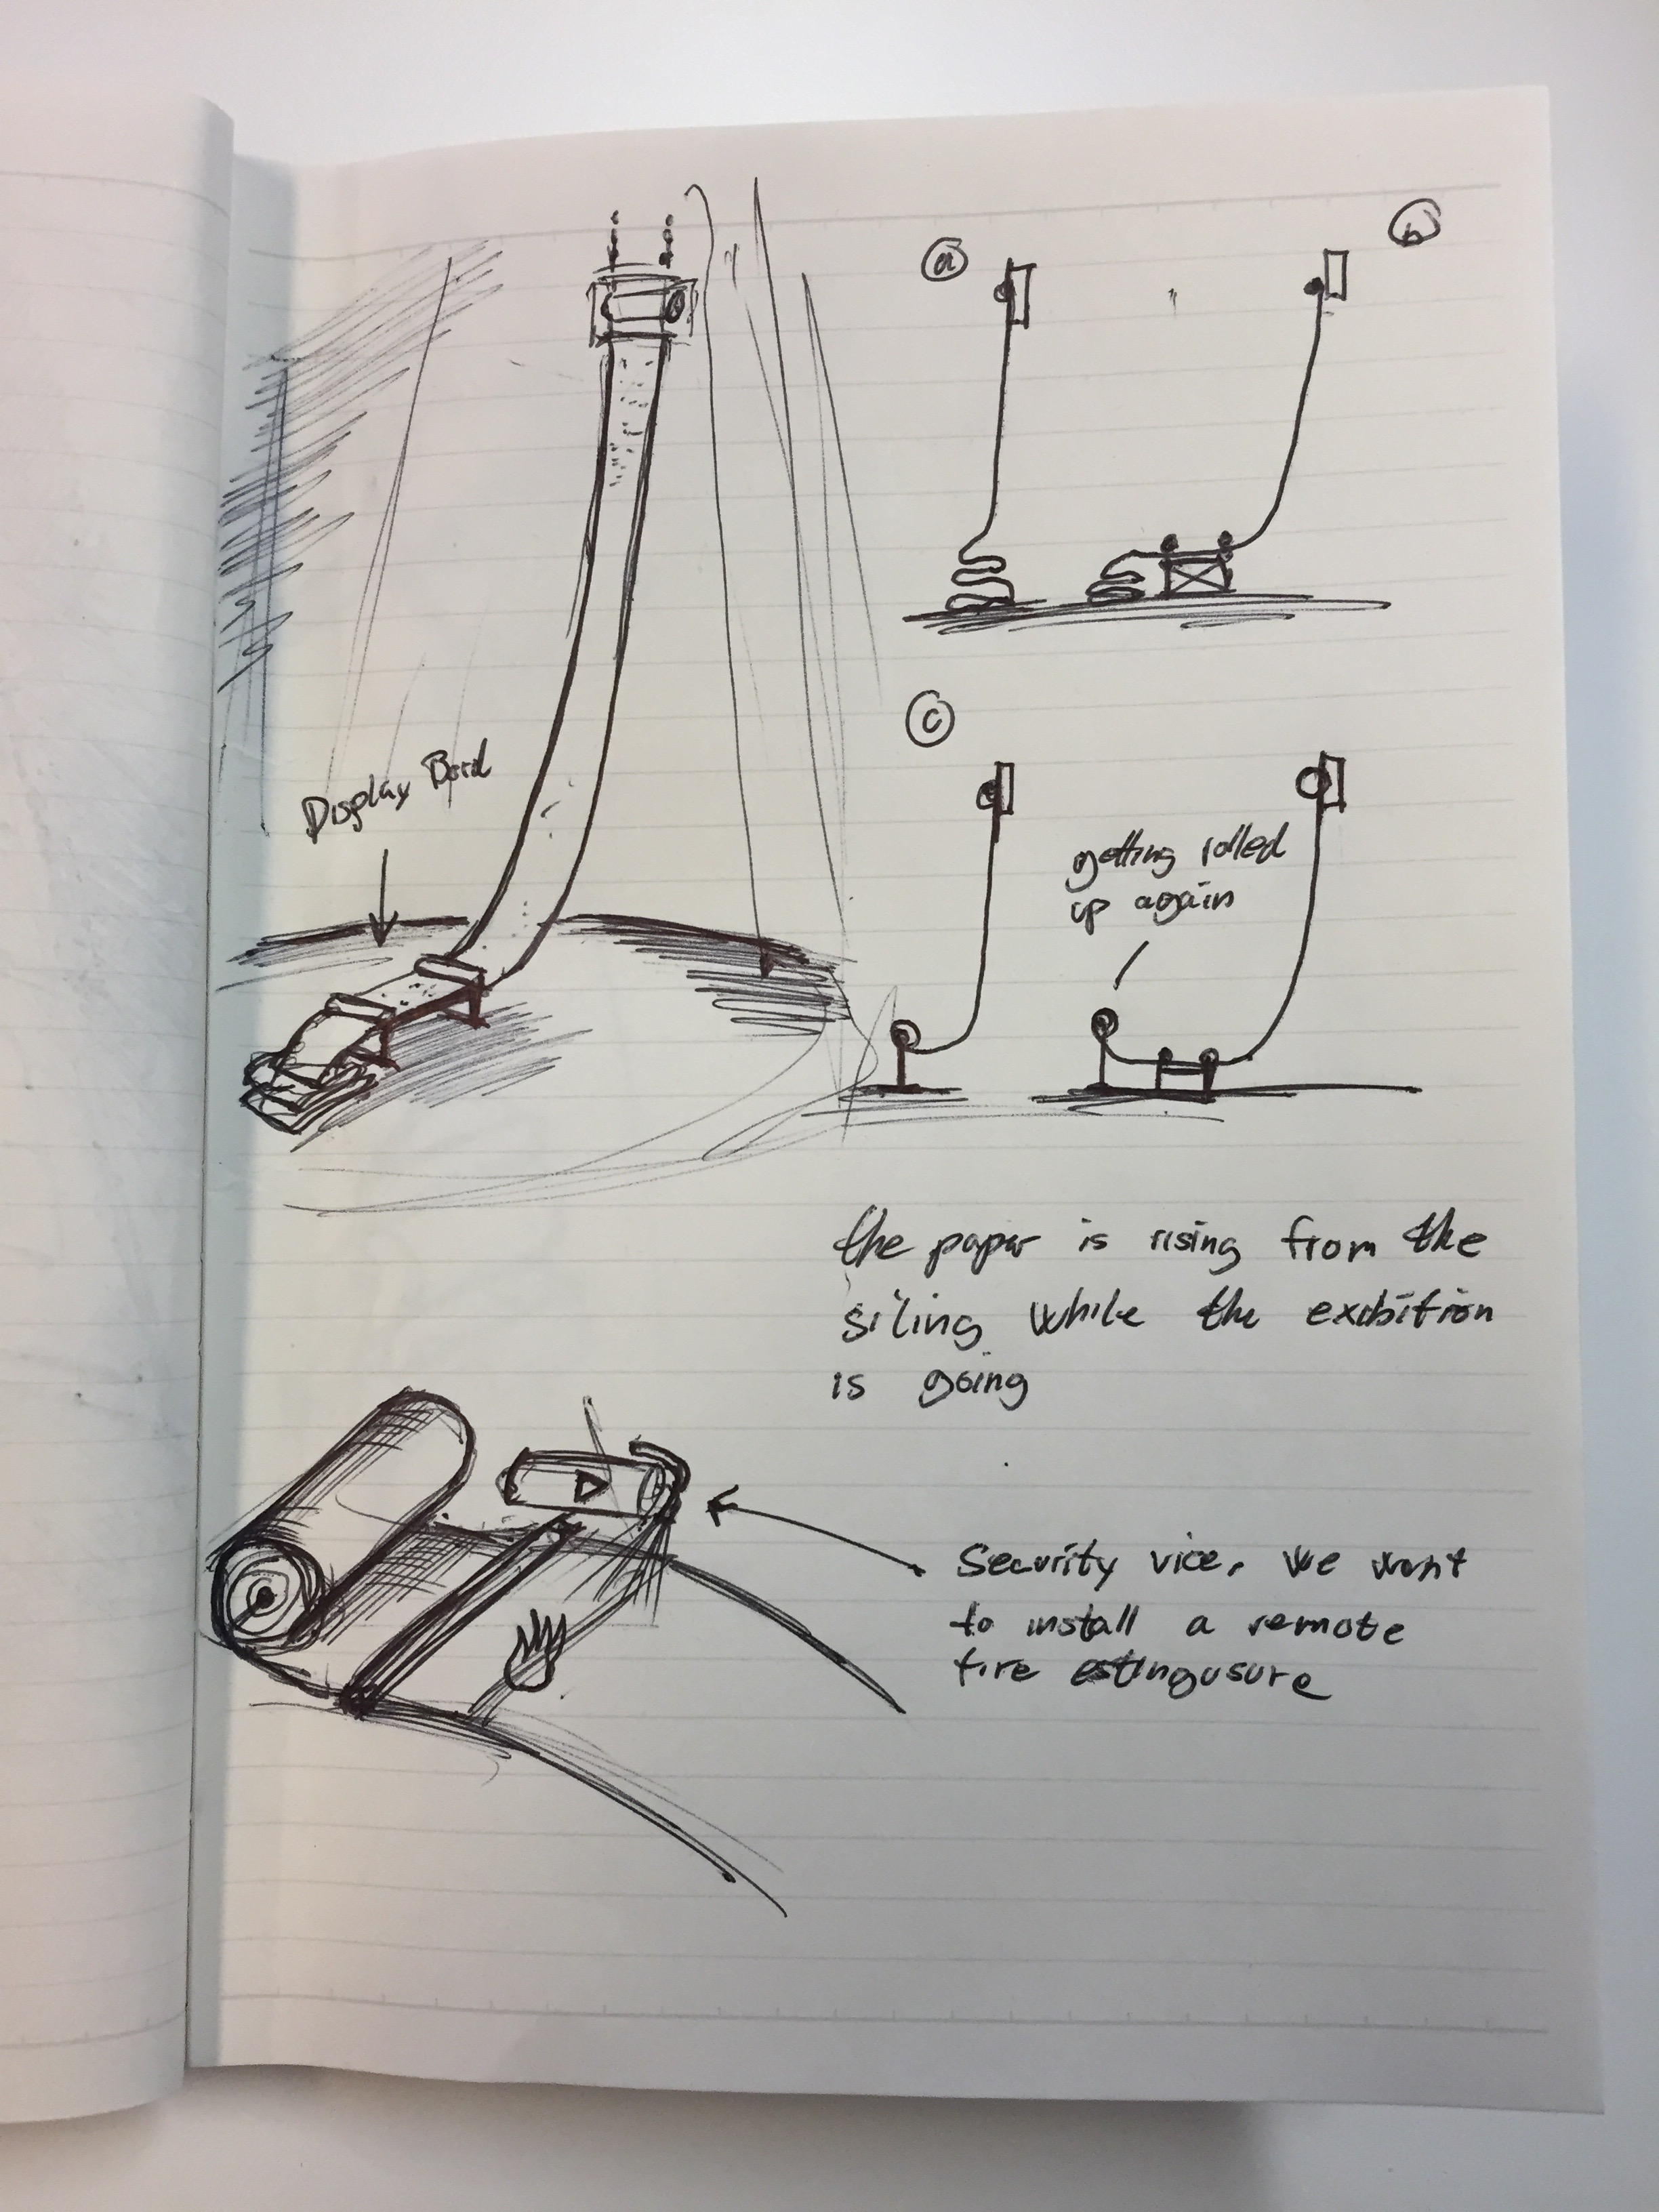 ⓐ
ⓑ
Display Bord
ⓒ
getting rolled
up again
the paper is rising from the
siling while the exibition
is going
Security vice, we want
to install a remote
fire estingusure